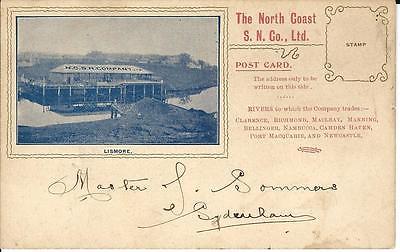 The North Coast
S. N. Co., Ltd.
STAMP
POST CARD.
The address only to be
written on this side.
RIVERS to which the Company trades:—
CLARENCE, RICHMOND, MACLEAY, MANNING,
BELLINGER, NAMBUCCA, CAMDEN HAVEN,
PORT MACQUARIE, AND NEWCASTLE.
N.C.S.N.COMPANY LTD
LISMORE.
Master S. Sommers
Sydenham